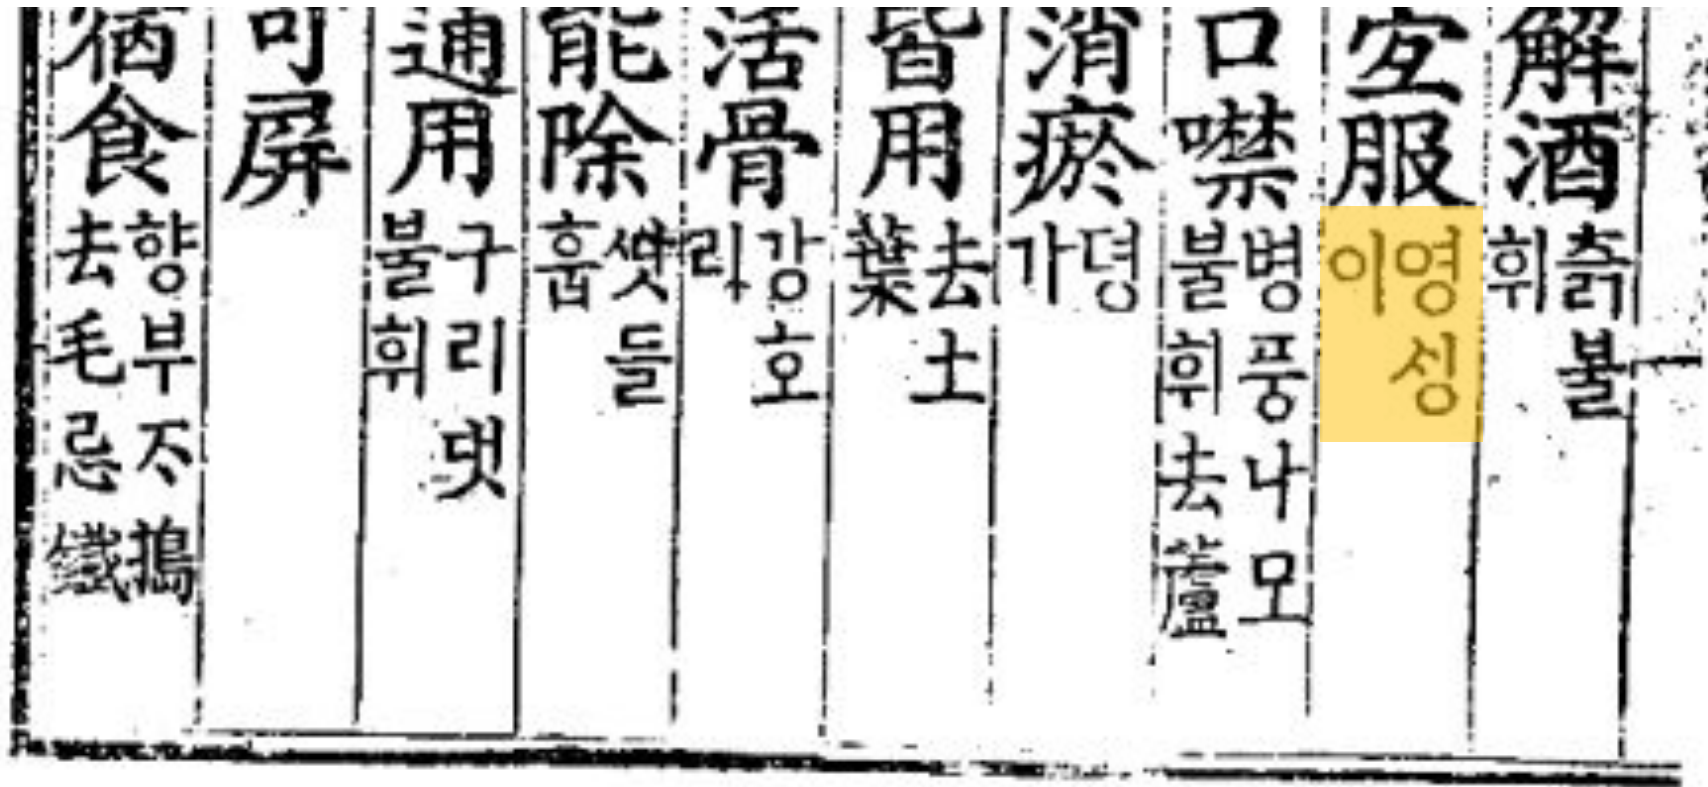 解酒 츩불휘
宜服 영싱이
口噤 병풍나모불휘去蘆
消瘀 뎡가
皆用 去土葉
活骨 강호리
能除 ᄯᅡᆺ들훕
通用 구리댓불휘
可屛
宿食 향부ᄌᆞ搗去毛忌鐵